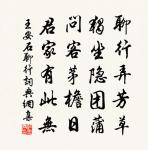 聊行弄芳草
獨坐隱團蒲
問客茅檐日
君家有此無
王安石聊行詞典網集